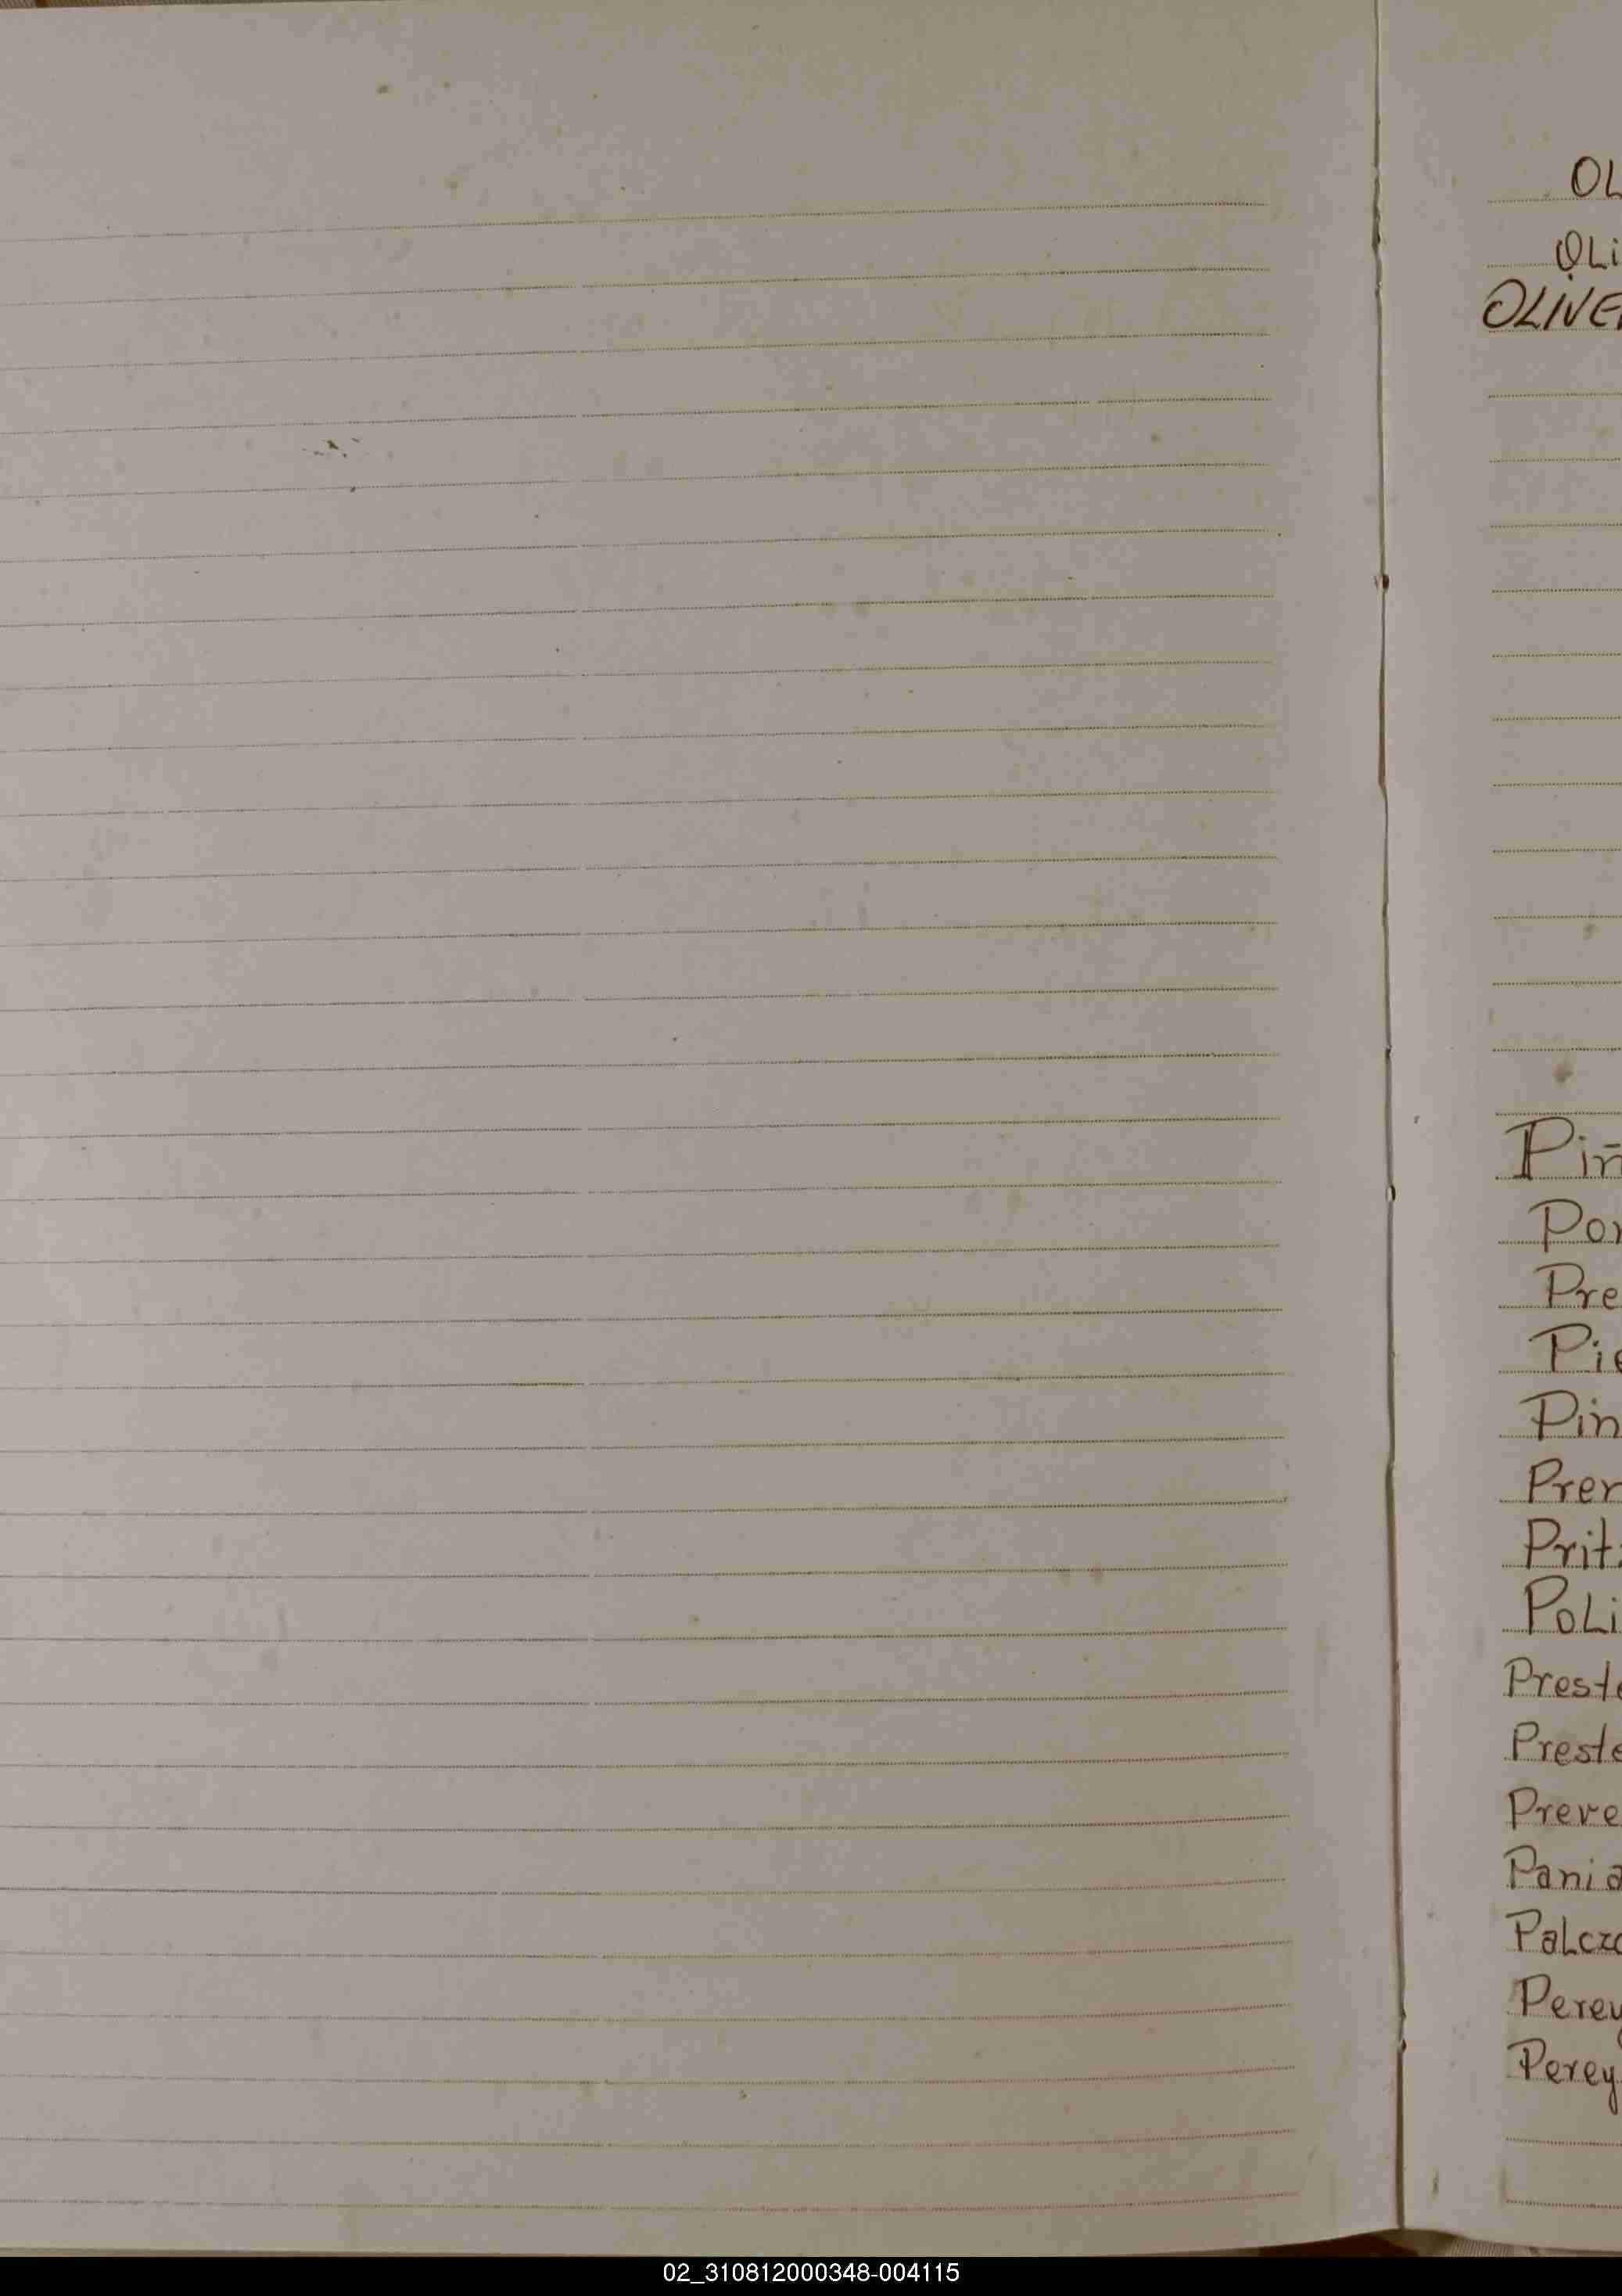 OL
OLi
OLIVE
Piñ
Por
Pre
Pie
Pin
Prer
Prit
PoLi
Preste
Preste
Preve
Pania
Palcz
Perey
Perey
02_310812000348-004115